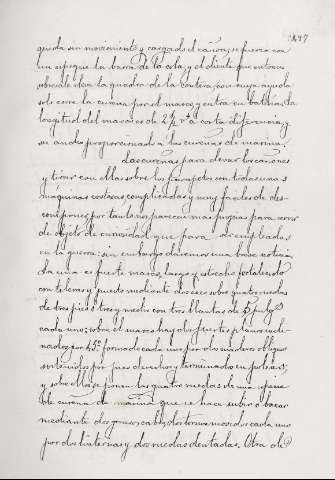 147
queda sin movimiento y cargado el cañon; se fuerza con
un espeque la barra de la cola, y el diente que entonces
sobresale eleva la quadra de la contera, con cuya ayuda
solo corre la cureña por el marco, y entra en bateria. La
longitud del marco es de 2½ vs a corta diferencia, y
su ancho proporcionado a las cureñas de marina.
Las cureñas para elevar los cañones
y tirar con ellas sobre los parapetos son todas unas
máquinas costosas, complicadas y muy faciles de des-
componer, por tanto nos parecen mas propias para servir
de objeto de curiosidad que para ser empleadas
en la guerra: sin embargo daremos una breve noticia.
La una es fuerte marco, largo y estrecho fortalecido
con teleras y puesto mediante dos exes sobre quatro ruedas
de tres pies ó tres y medio con tres llantas de 5 pulgs
cada uno; sobre el marco hay dos fuertes planos incli-
nados por 45.º formado cada uno por dos maderos obliquos
sostenidos por pies derechos y terminados en
y sobre ellos se ponen las quatro ruedas de una espe-
cie de cureña de marina que se hace subir ó bajar
mediante dos gruesos cables, dos tornos movidos cada uno
por dos linternas y dos ruedas dentadas. Otra de